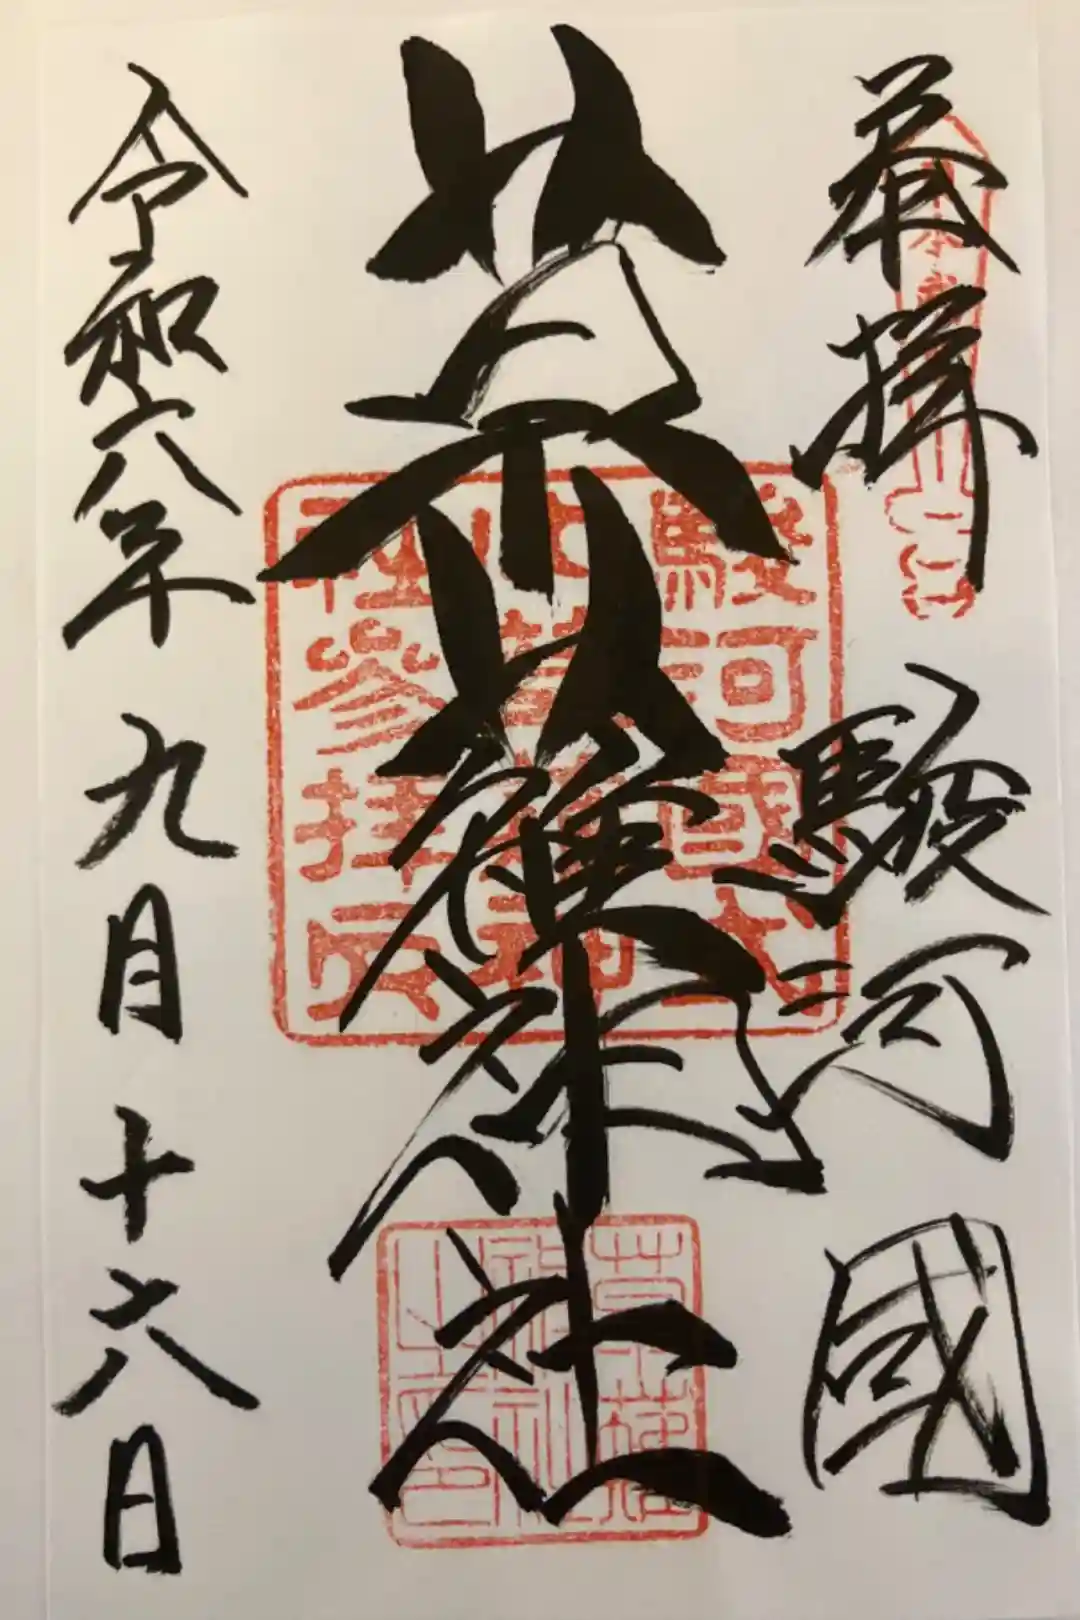 奉拝 駿河國
草薙神社
令和六年九月十六日
駿河國式
内草薙神
社參拝印
草薙
神社
之印